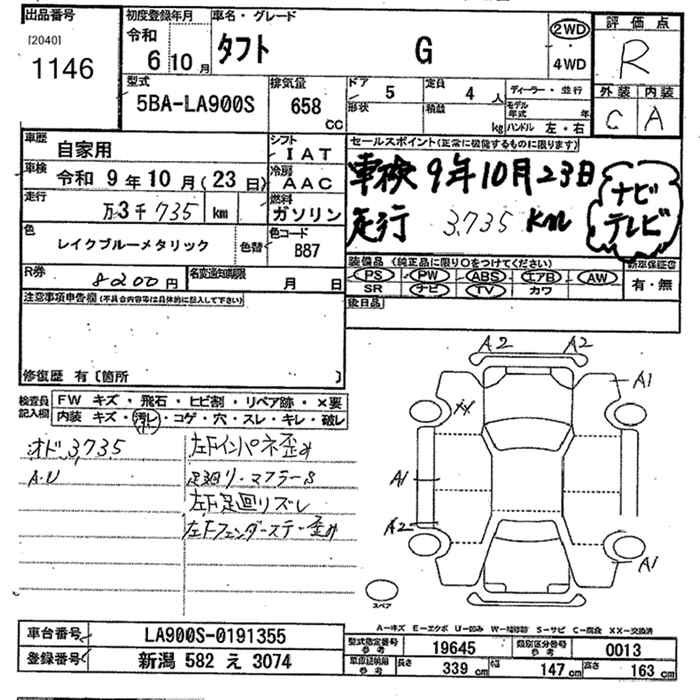 出品番号
[2040]
1146
初度登録年月
令和
6 10 月
車名・グレード
タフト G
2WD
4WD
評価点
R
外装 内装
C A
型式
5BA-LA900S
排気量
658 CC
ドア 5
形状
定員 4 人
積載 kg
ディーラー・並行
モデル年式 年
ハンドル 左・右
車歴
自家用
シフト
IAT
車検 令和 9 年 10 月 (23 日)
冷房
AAC
走行
万3千735 km
燃料
ガソリン
色
レイクブルーメタリック
色替
色コード
B87
R券
8200 円
名変通知期限
月 日
セールスポイント(正常に機能するものに限ります)
車検 9年10月23日
走行 3,735 km
ナビ
テレビ
装備品(純正品に限り○をつけてください)
PS PW ABS エアB AW
SR ナビ TV カワ
新車保証書
有・無
後日品
注意事項申告欄(不具合内容等は具体的に記入して下さい)
修復歴 有〔箇所 〕
検査員記入欄
FW キズ・飛石・ヒビ割・リペア跡・×要
内装 キズ・汚レ・コゲ・穴・スレ・キレ・破レ
オド 3,735
A.U
左Fインパネ歪み
足廻り・マフラーS
左F足回りズレ
左Fフェンダーステー歪み
A2 A2
A1
XX
A1
A2
A1
スペア
A-キズ E-エクボ U-凹み W-補修跡 S-サビ C-腐食 XX-交換済
車台番号
LA900S-0191355
登録番号
新潟 582 え 3074
型式指定番号
参考
19645
類別区分番号
参考
0013
車庫証明用
参考
長さ 339 cm 幅 147 cm 高さ 163 cm